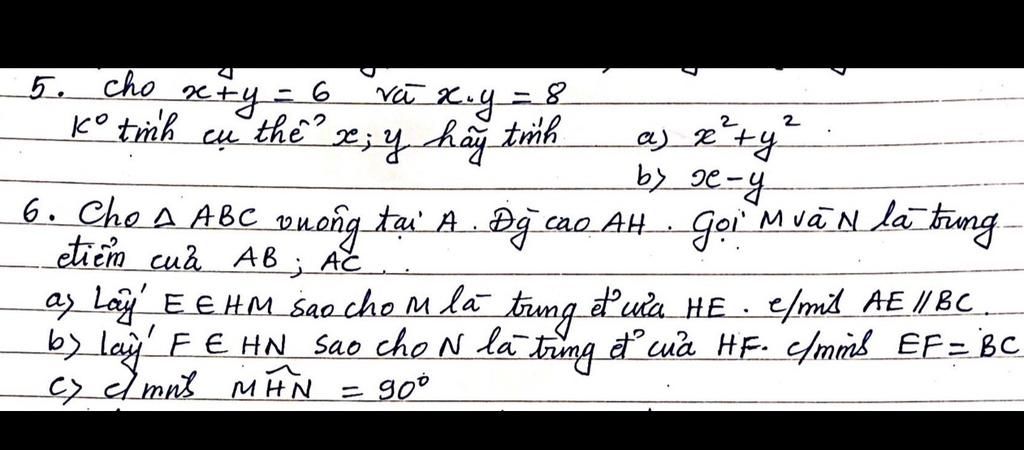 5. Cho x+y = 6 và x.y = 8
K° tính cụ thể x; y hãy tính a) x² + y²
b) x - y
6. Cho Δ ABC vuông tại A. Đg cao AH. Gọi M và N là trung
điểm của AB ; AC
a) Lấy E ∈ HM sao cho M là trung đ° của HE. c/minh AE // BC.
b) lấy F ∈ HN sao cho N là trung đ° của HF. c/minh EF = BC
c) c/minh MĤN = 90°